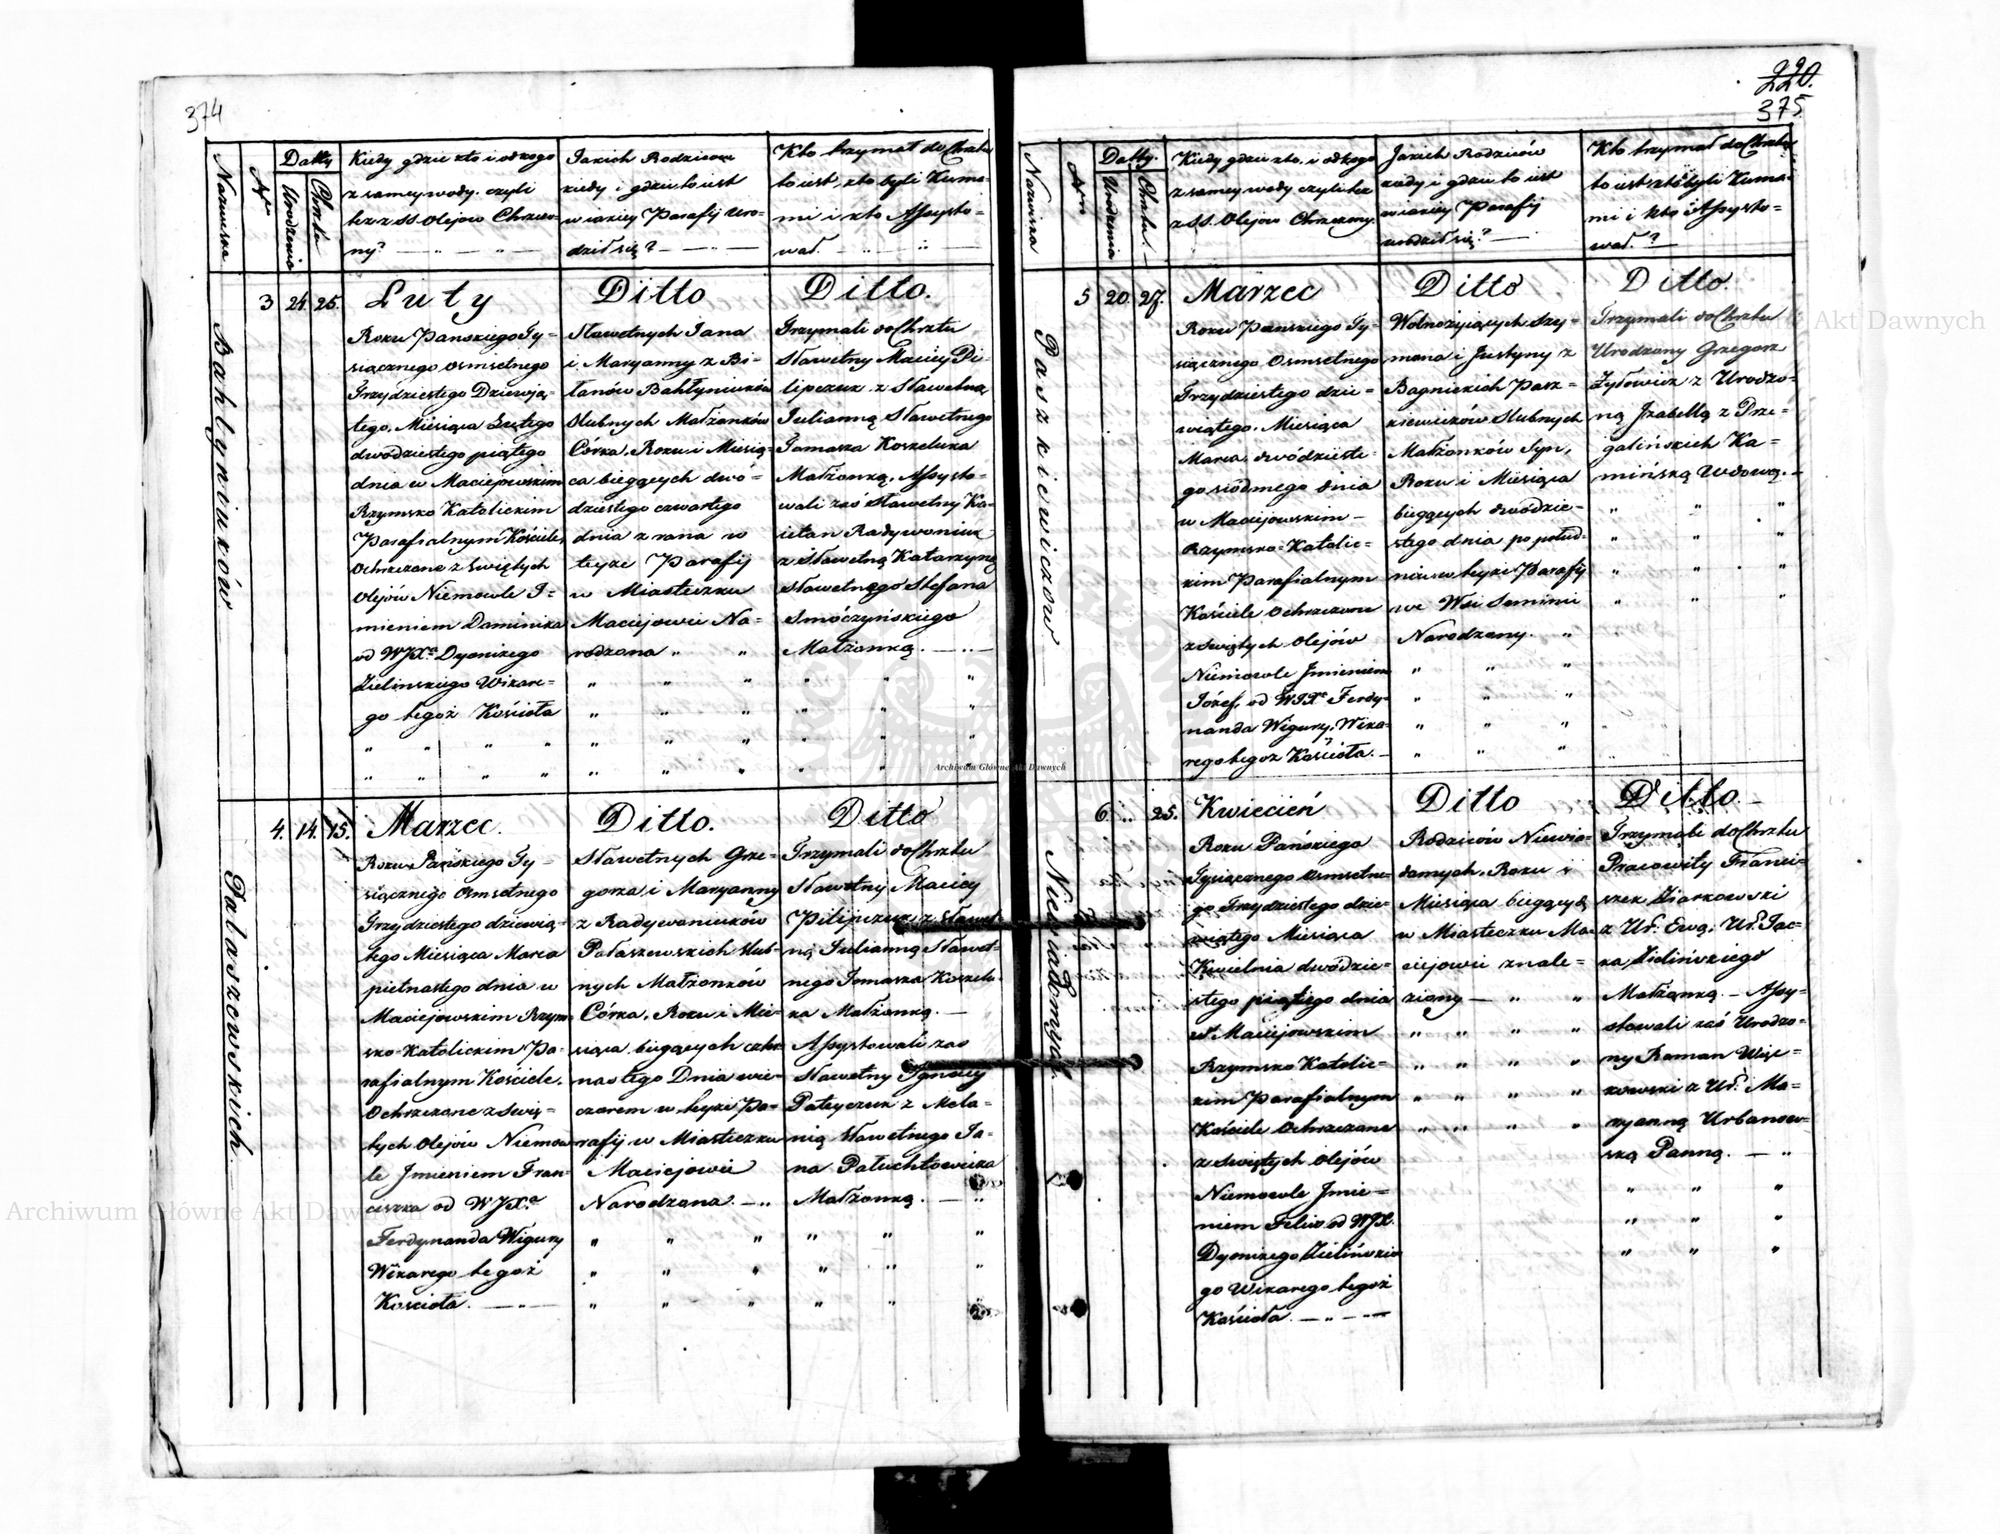 374
Nazwiska
Nr
Datty
Urodzenia
Chrztu
Kiedy gdzie kto i od kogo
z samey wody czyli
też z SS. Olejow Chrzczo-
ny?
Jakich Rodzicow
kiedy i gdzie to iest
w jakiey Parafij Uro-
dził się?
Kto trzymał do Chrztu
to iest, kto byli Kuma-
mi i kto Assysto-
wał.
Bahłyniuków
3 24 25.
Luty
Roku Panskiego Ty-
siącznego Osmsetnego
Trzydziestego Dziewią-
tego, Miesiąca Lutego
dwódziestego piątego
dnia w Maciejowskim
Rzymsko Katolickim
Parafialnym Kościele,
Ochrzczone z Swiętych
Olejów Niemowle I-
mieniem Daminika
od WJXa Dyonizego
Zielinskiego Wikare-
go tegoż Kościoła
Ditto
Sławetnych Jana
i Maryanny z Bi-
łanów Bahłyniuków
Slubnych Małżonków
Córka, Roku i Miesią-
ca bieggcych dwó-
dziestego czwartego
dnia z rana w
teyże Parafij
w Miasteczku
Maciejowie Na-
rodzona
Ditto.
Trzymali do Chrztu
Sławetny Maciey Pi-
lipczuk z Sławetną
Julianną Sławetnego
Tomasza Koszeluka
Małżonką, Assysto-
wali zaś Sławetny Ka-
ietan Radywoniuk
z Sławetną Katarzyną
Sławetnego Stefana
Smóczyńskiego
Małżonką.
Pałaszewskich
4. 14. 15.
Marzec.
Roku Pańskiego Ty-
siącznego Osmsetnego
Trzydziestego dziewią-
tego Miesiąca Marca
pietnastego dnia w
Maciejowskim Rzym-
sko-Katolickim Pa-
rafialnym Kościele,
Ochrzczone z Swię-
tych Olejów Niemow-
le Jmieniem Fran-
ciszka od WJXa
Ferdynanda Wigury
Wikarego tegoż
Kościoła.
Ditto.
Sławetnych Grze-
gorza i Maryanny
z Radywoniuków
Pałaszewskich Slub-
nych Małżonków
Córka, Roku i Mie-
siąca bieggcych czter-
nastego Dnia wie-
czorem w teyże Pa-
rafij w Miasteczku
Maciejowie
Narodzona.
Ditto
Trzymali do Chrztu
Sławetny Maciey
Pilipczuk z Sławet-
ną Julianną Sławet-
nego Tomasza Koszelu-
ka Małżonką.
Assystowali zaś
Sławetny Ignacy
Pateyczuk z Mela-
nią Sławetnego Ja-
na Pałuchtowicza
Małżonką.
220.
375
Nazwiska
Nr
Datty.
Urodzenia
Chrztu.
Kiedy gdzie kto, i od kogo
z samey wody czyli tez
z SS. Olejow Chrzczony
Jakich Rodziców
kiedy i gdzie to iest
w jakiey Parafij
urodził się?
Kto trzymał do Chrztu
to iest kto byli Kuma-
mi i kto Assysto-
wał?
Paszkiewiczow
5 20 27.
Marzec
Roku Panskiego Ty-
siącznego Osmsetnego
Trzydziestego dzie-
wiątego, Miesiąca
Marca, dwódzieste-
go siodmego dnia
w Maciejowskim
Rzymsko-Katolic-
kim Parafialnym
Kościele Ochrzczone
z Swiętych Olejów
Niemowle Jmieniem
Józef, od WJXa Ferdy-
nanda Wigury, Wika-
rego tegoż Kościoła.
Ditto
Wolnożyjących Szy-
mona i Justyny z
Bagnickich Pasz-
kiewiczów Slubnych
Małżonków Syn,
Roku i Miesiąca
bieggcych dwódzie-
stego dnia po połud-
niu w teyże Parafij
we Wsi Siminii
Narodzony.
Ditto.
Trzymali do Chrztu
Urodzony Grzegorz
Zyłowicz z Urodzo-
ną Jzabellą z Drze-
galińskich Ka-
mińską Wdową.
Niewiadomych
6 25.
Kwiecień
Roku Pańskiego
Tysiącznego Osmsetne-
go Trzydziestego dzie-
wiątego Miesiąca
Kwietnia dwódzie-
stego piątego dnia
w Maciejowskim
Rzymsko Katolic-
kim Parafialnym
Kościele Ochrzczone
z Swiętych Olejów
Niemowle Jmie-
niem Felix od WJX.
Dyonizego Zielińskie-
go Wikarego tegoż
Kościoła.
Ditto
Rodziców Niewia-
domych, Roku i
Miesiąca bieggcych
w Miasteczku Ma-
ciejowie znale-
ziony
Ditto
Trzymali do Chrztu
Pracowity Franci-
szek Ziarkowski
z Ur. Ewą, Ur. Jac-
ka Zielińskiego
Małżonką. Assy-
stowali zaś Urodzo-
ny Roman Więc-
kowski z Ur. Ma-
ryanną Urbanow-
ską Panną.
Archiwum Główne Akt Dawnych
Archiwum Główne Akt Dawnych
Akt Dawnych